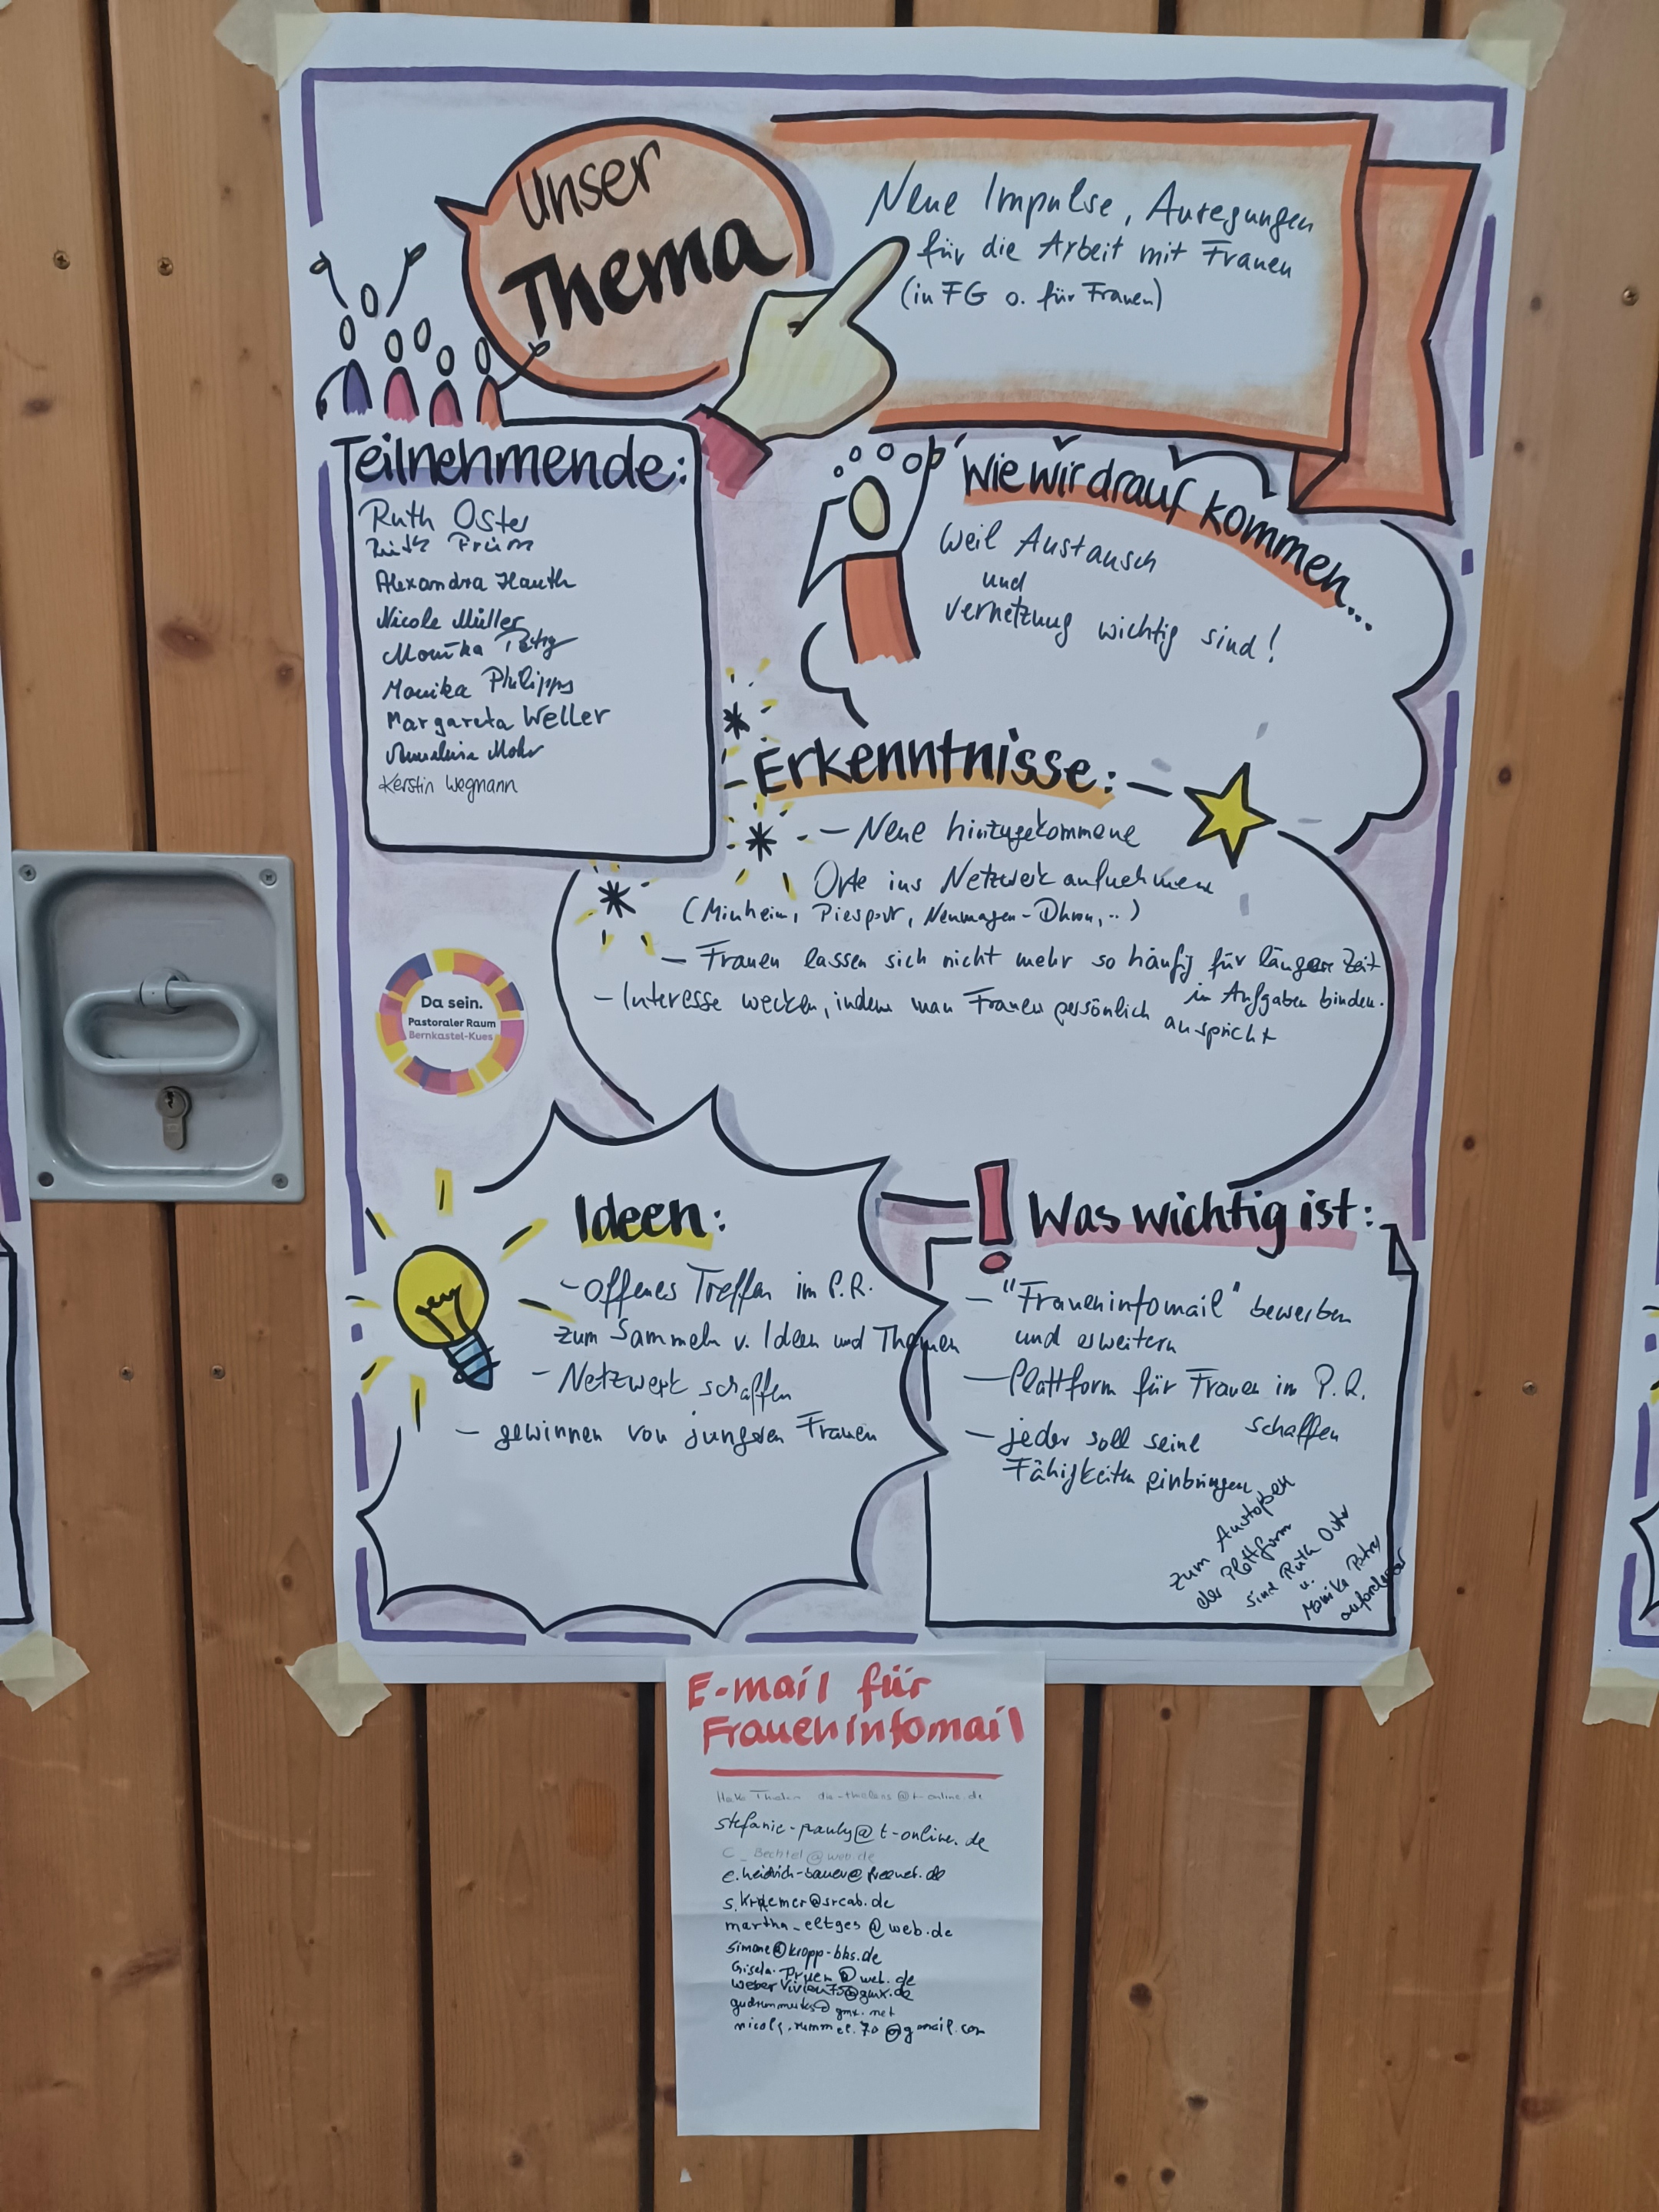 Unser
Thema
Neue Impulse, Anregungen
für die Arbeit mit Frauen
(in FG o. für Frauen)
Teilnehmende:
Ruth Oster
Prüm
Alexandra Hauth
Nicole Müller
Monika
Monika Philipps
Margareta Weller
Mohr
Kerstin Wegmann
Wie wir drauf kommen...
Weil Austausch
und
Vernetzung wichtig sind!
Erkenntnisse:
- Neue hinzugekommene
Orte ins Netzwerk aufnehmen
(Minheim, Piesport, Neumagen-Dhron, ..)
- Frauen lassen sich nicht mehr so häufig für längere Zeit
in Aufgaben binden.
- Interesse wecken, indem man Frauen persönlich
anspricht
Da sein.
Pastoraler Raum
Bernkastel-Kues
Ideen:
- offenes Treffen im P.R.
zum Sammeln v. Ideen und Themen
- Netzwerk schaffen
- gewinnen von jüngeren Frauen
Was wichtig ist:
- "Fraueninfomail" bewerben
und erweitern
- Plattform für Frauen im P.R.
schaffen
- jeder soll seine
Fähigkeiten einbringen
zum Anstoßen
der Plattform
sind Ruth Oster
u.
Monika
E-mail für
Fraueninfomail
stefanie-pauly@t-online.de
C_Bechtel@web.de
s.kraemer@srcab.de
martha_eltges@web.de
simone@kropp-bks.de